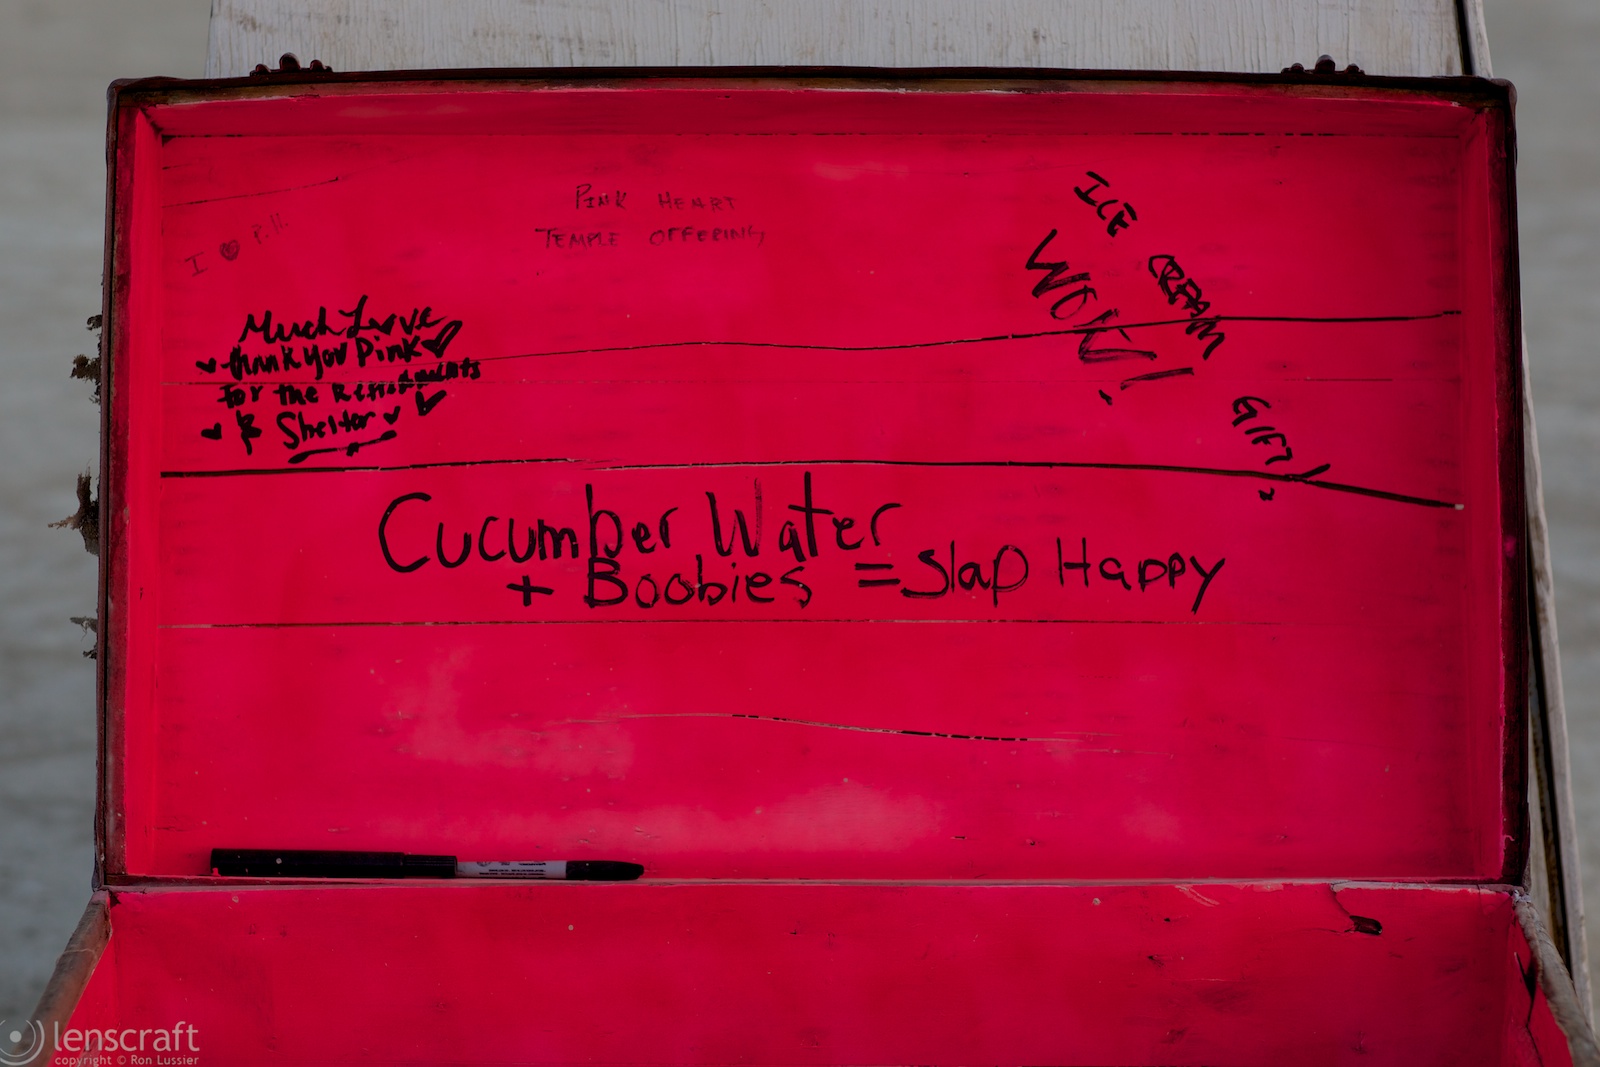 PINK HEART
TEMPLE OFFERING
I ♥ P.H.
Much Love
Thank you Pink
for the Refreshments
& Shelter
ICE CREAM GIFT!
WOW!
Cucumber Water
+ Boobies = Slap Happy
lenscraft
copyright © Ron Lussier